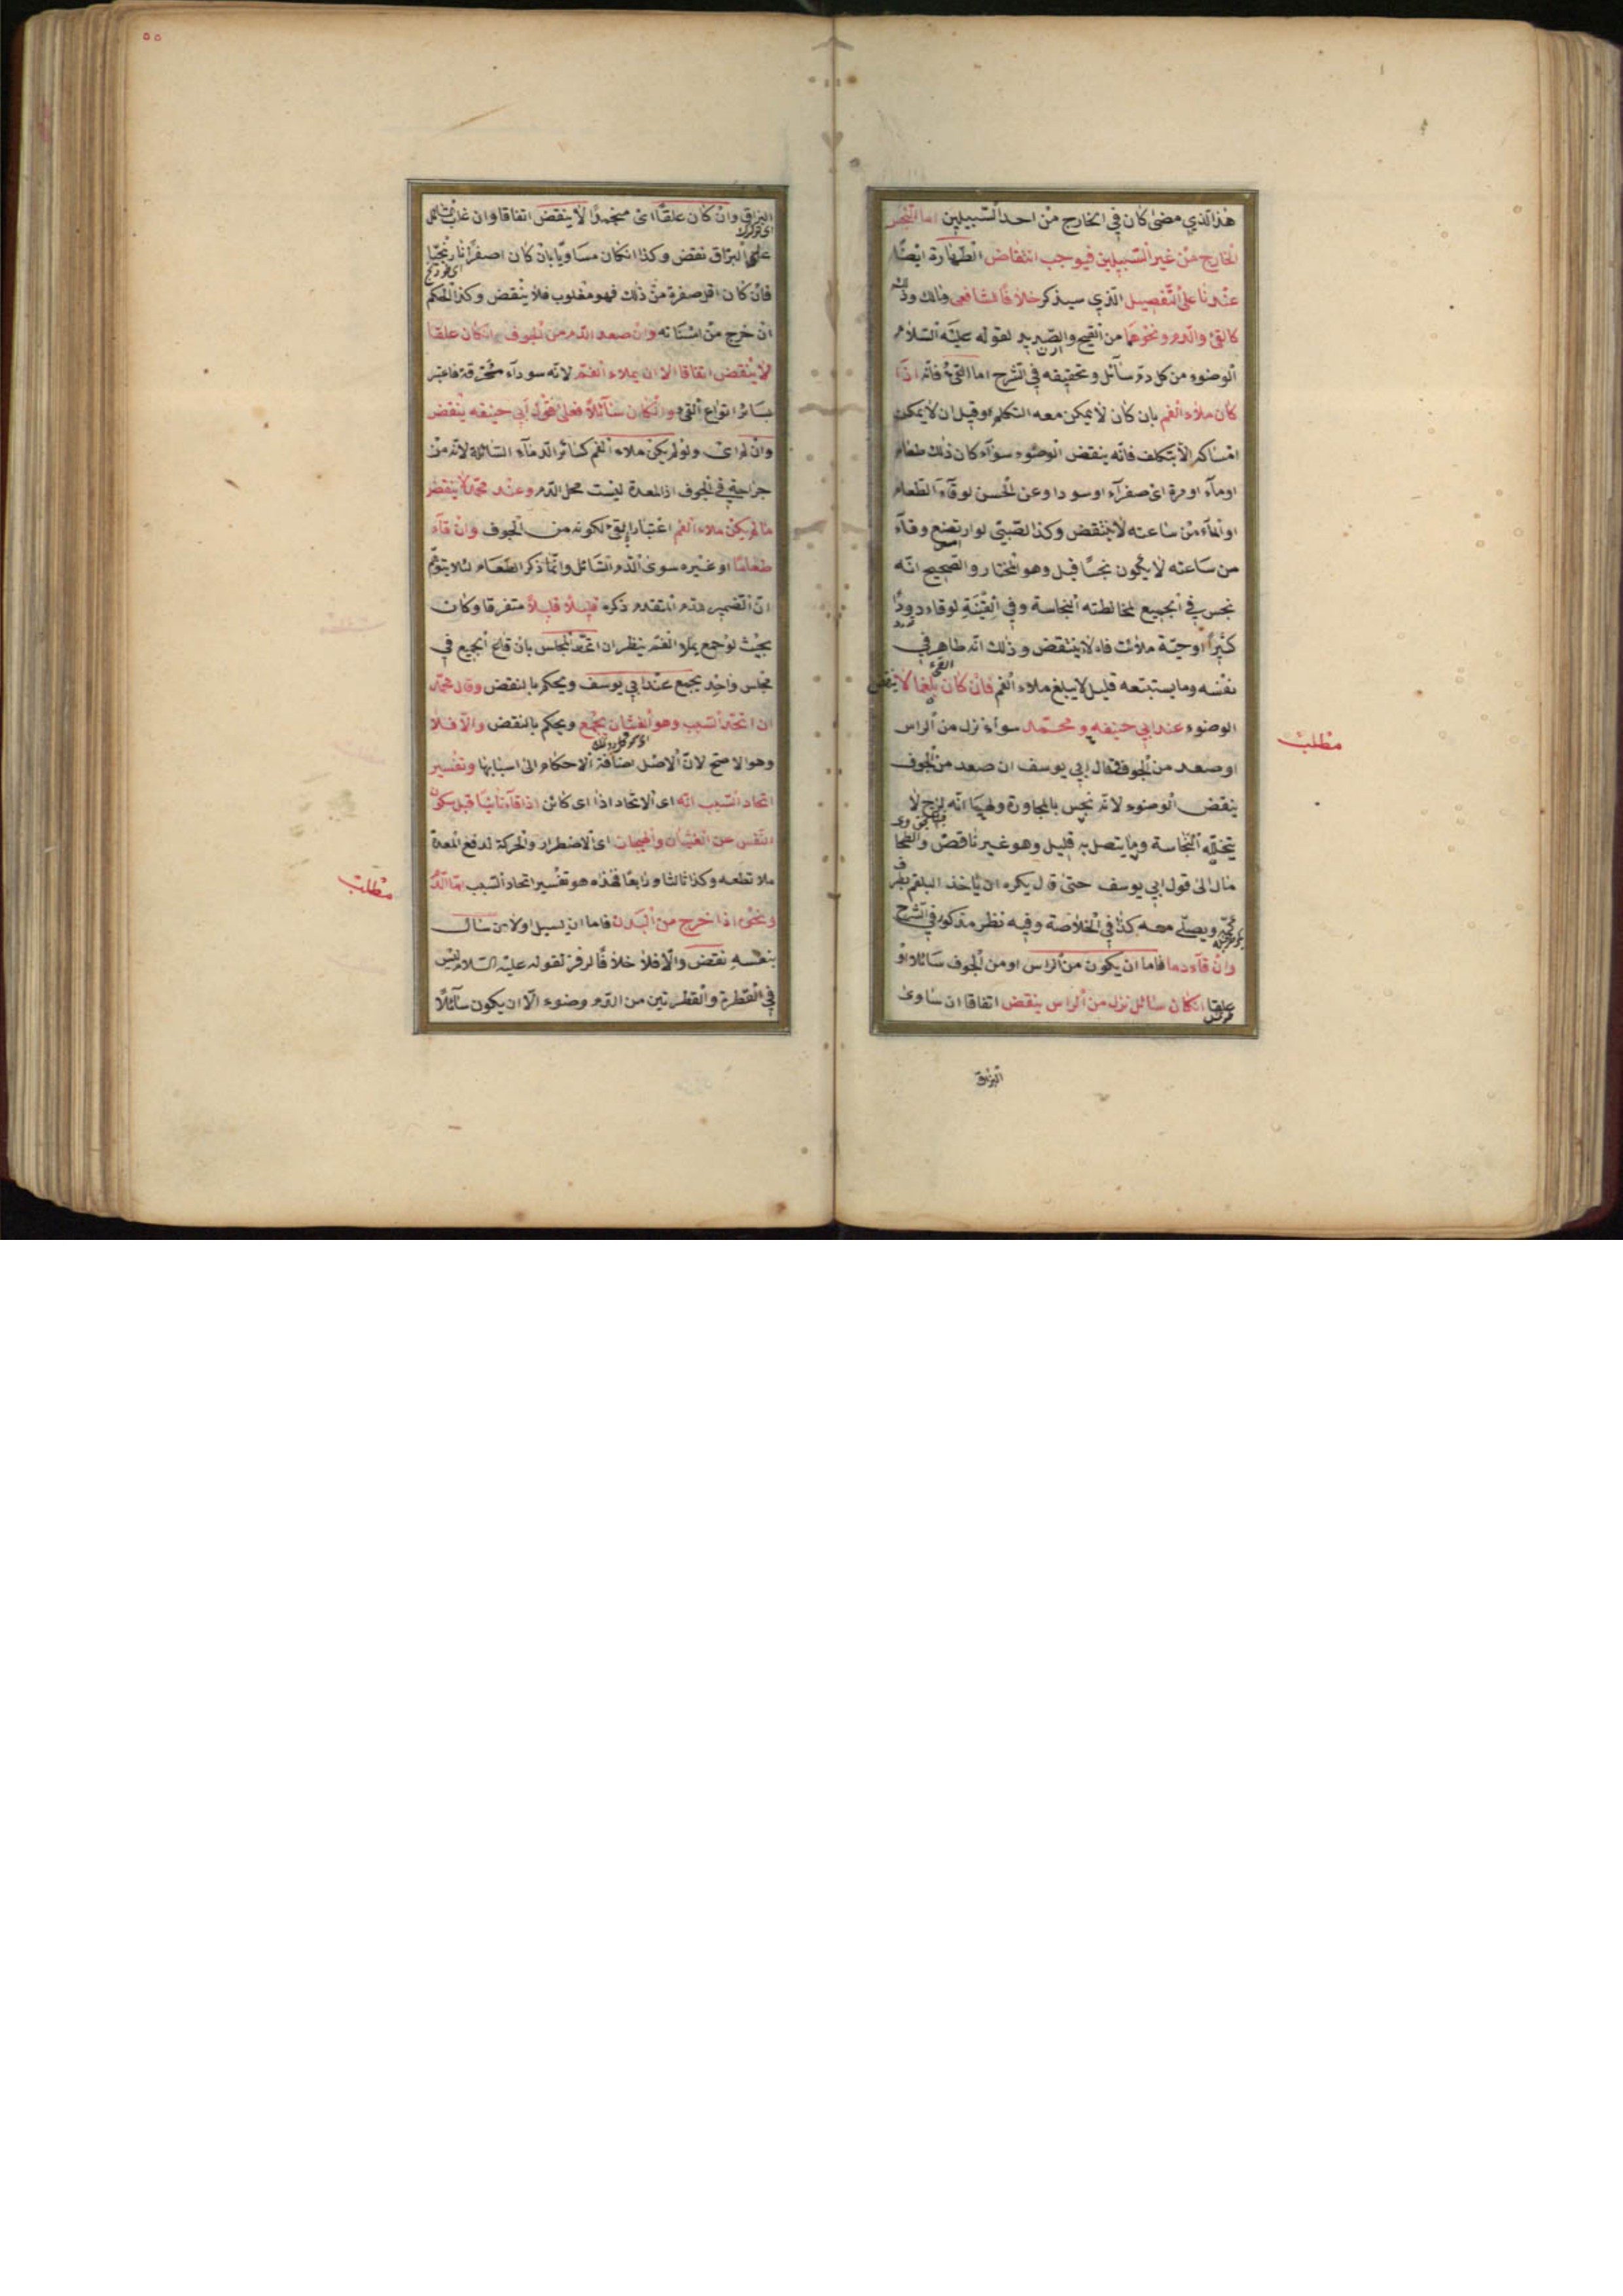 هذا الذي مضى كان في الخارج من احد السبيلين اما النجس
الخارج من غير السبيلين فيوجب انتقاض الطهارة ايضا
عندنا على التفصيل الذي سيذكر خلافا للشافعى ومالك وذلك
كالقئ والدم ونحوهما من القيح والصديد لقوله عليه السلام
الوضوء من كل دم سائل وتحقيقه في الشرح اما القئ فانه اذا
كان ملاء الفم بان كان لا يمكن معه التكلم او قيل ان لا يمكن
امساكه الا بتكلف فانه ينقض الوضوء سوآء كان ذلك طعام
اوماء او مرة اى صفرآء او سودا وعن الحسن لو قآء الطعام
او الماء من ساعته لا ينقض وكذا الصبي لو ارتضع وقآء
من ساعته لا يكون نجسا قيل وهو المختار والصحيح انه
نجس في الجميع لمخالطته النجاسة وفي القنية لو قاء دودا
كثيرا او حية ملأت فاه لا ينتقض وذلك انه طاهر في
نفسه وما يستتبعه قليل لا يبلغ ملاء الفم فان كان بلغما لا ينقض
الوضوء عند ابي حنيفه ومحمد سواء نزل من الراس
مطلب
او صعد من الجوف وقال ابي يوسف ان صعد من الجوف
ينقض الوضوء لانه نجس بالمجاورة ولهما انه لزج لا
يتخلله النجاسة وما يتصل به قليل وهو غير ناقض والطحا
مال الى قول ابي يوسف حتى قال يكره ان ياخذ البلغم بطرف
ويصلي معه كذا في الخلاصة وفيه نظر مذكور في الشرح
وان قآء دما فاما ان يكون من الراس او من الجوف سائلا او
علقا انكان سائل نزل من الراس ينقض اتفاقا ان ساوى
البزاق
٥٥
البزاق وان كان علقا اى منجمدا لا ينقض اتفاقا وان غلب
على البزاق نقض وكذا انكان مساويا بان كان اصفر نارنجيا
فان كان اقل صفرة من ذلك فهو مغلوب فلا ينقض وكذا الحكم
ان خرج من اسنانه وان صعد الدم من الجوف انكان علقا
لا ينقض اتفاقا الا ان يملاء الفم لانه سودآء محترقة فاعتبر
بسائر انواع القئ وانكان سائلا فعلى قول ابي حنيفه ينقض
وان لم اى ولو لم يكن ملاء الفم كسائر الدمآء السائلة لانه من
جراحة في الجوف اذ المعدة ليست محل الدم وعند محمد لا ينقض
ما لم يكن ملاء الفم اعتبارا بالقئ لكونه من الجوف وان قآء
طعاما او غيره سوى الدم السائل وانما ذكر الطعام لئلا يتوهم
ان الضمير للدم المتقدم ذكره قليلا قليلا متفرقا وكان
بحيث لو جمع يملاء الفم ينظر ان اتحد المجلس بان قاء الجميع في
مجلس واحد يجمع عند ابي يوسف ويحكم بالنقض وقال محمد
ان اتحد السبب وهو الغشيان يجمع ويحكم بالنقض والا فلا
وهو الاصح لان الاصل اضافة الاحكام الى اسبابها وتفسير
اتحاد السبب انه اى الاتحاد اذا اى كائن اذا قآء ثانيا قبل سكون
النفس عن الغشيان والهيجان اى الاضطراد والحركة لدفع المعدة
ملا تطعه وكذا ثالثا ورابعا فهذه هو تفسير اتحاد السبب اما الدم
مطلب
ونحوه اذا خرج من البدن فاما ان يسيل اولا من سال
بنفسه نقض والا فلا خلافا لزفر لقوله عليه السلام ليس
في القطرة والقطرتين من الدم وضوء الا ان يكون سآئلا